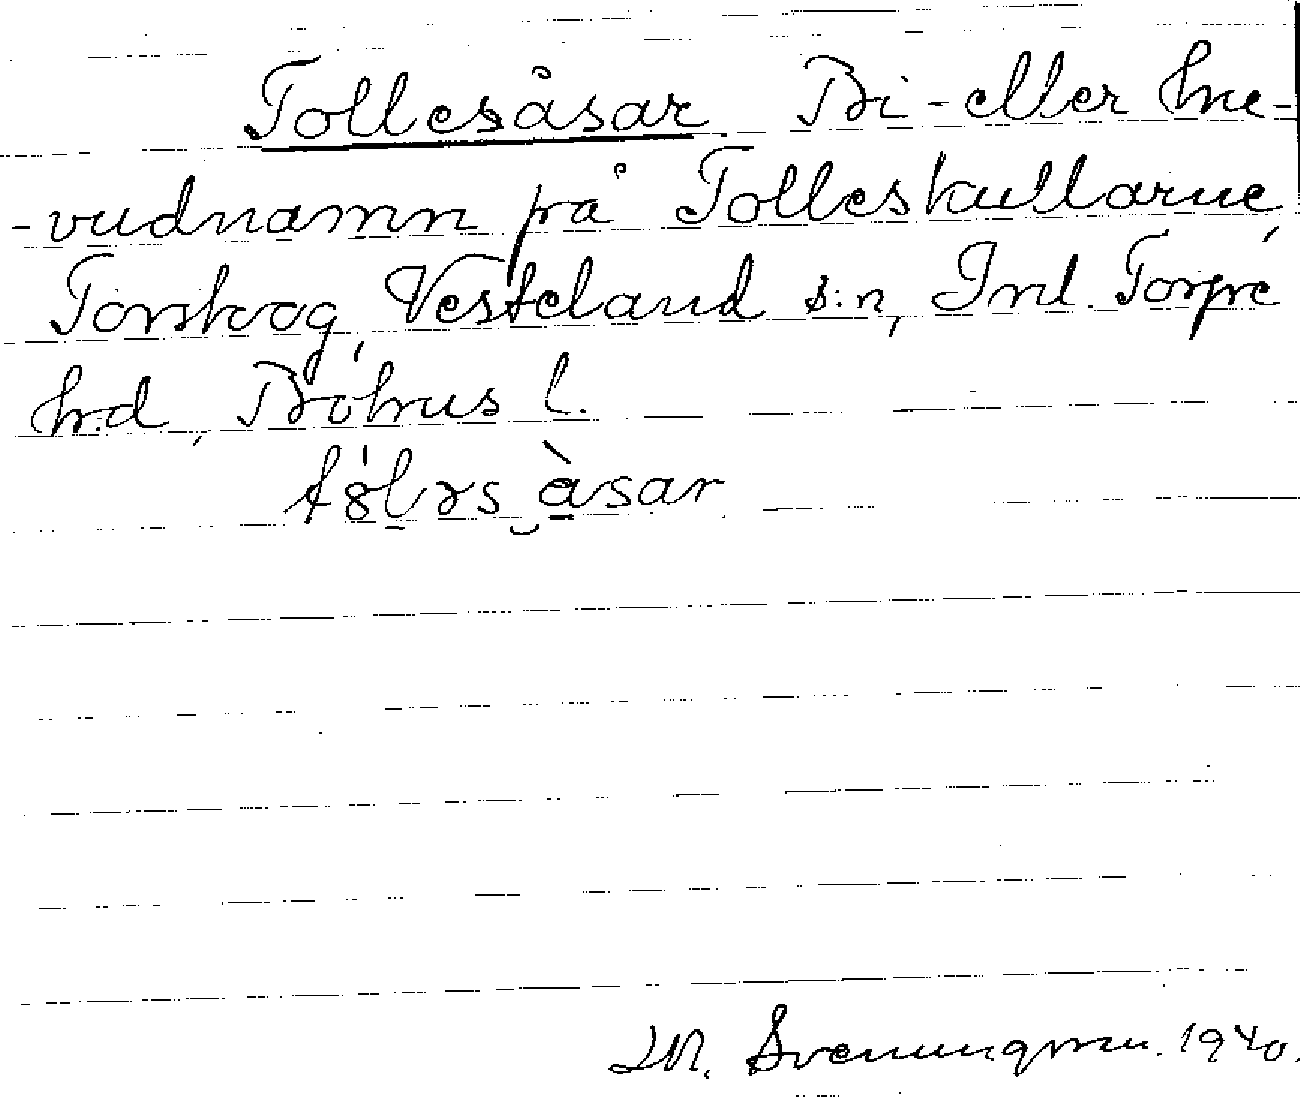 Tollesåsar Bi- eller hu-
-vudnamn på Tolleskullarne,
Torskog, Vesteland s:n, Inl. Torpe
h:d, Bohus l.
M. Svenungsson. 1940.